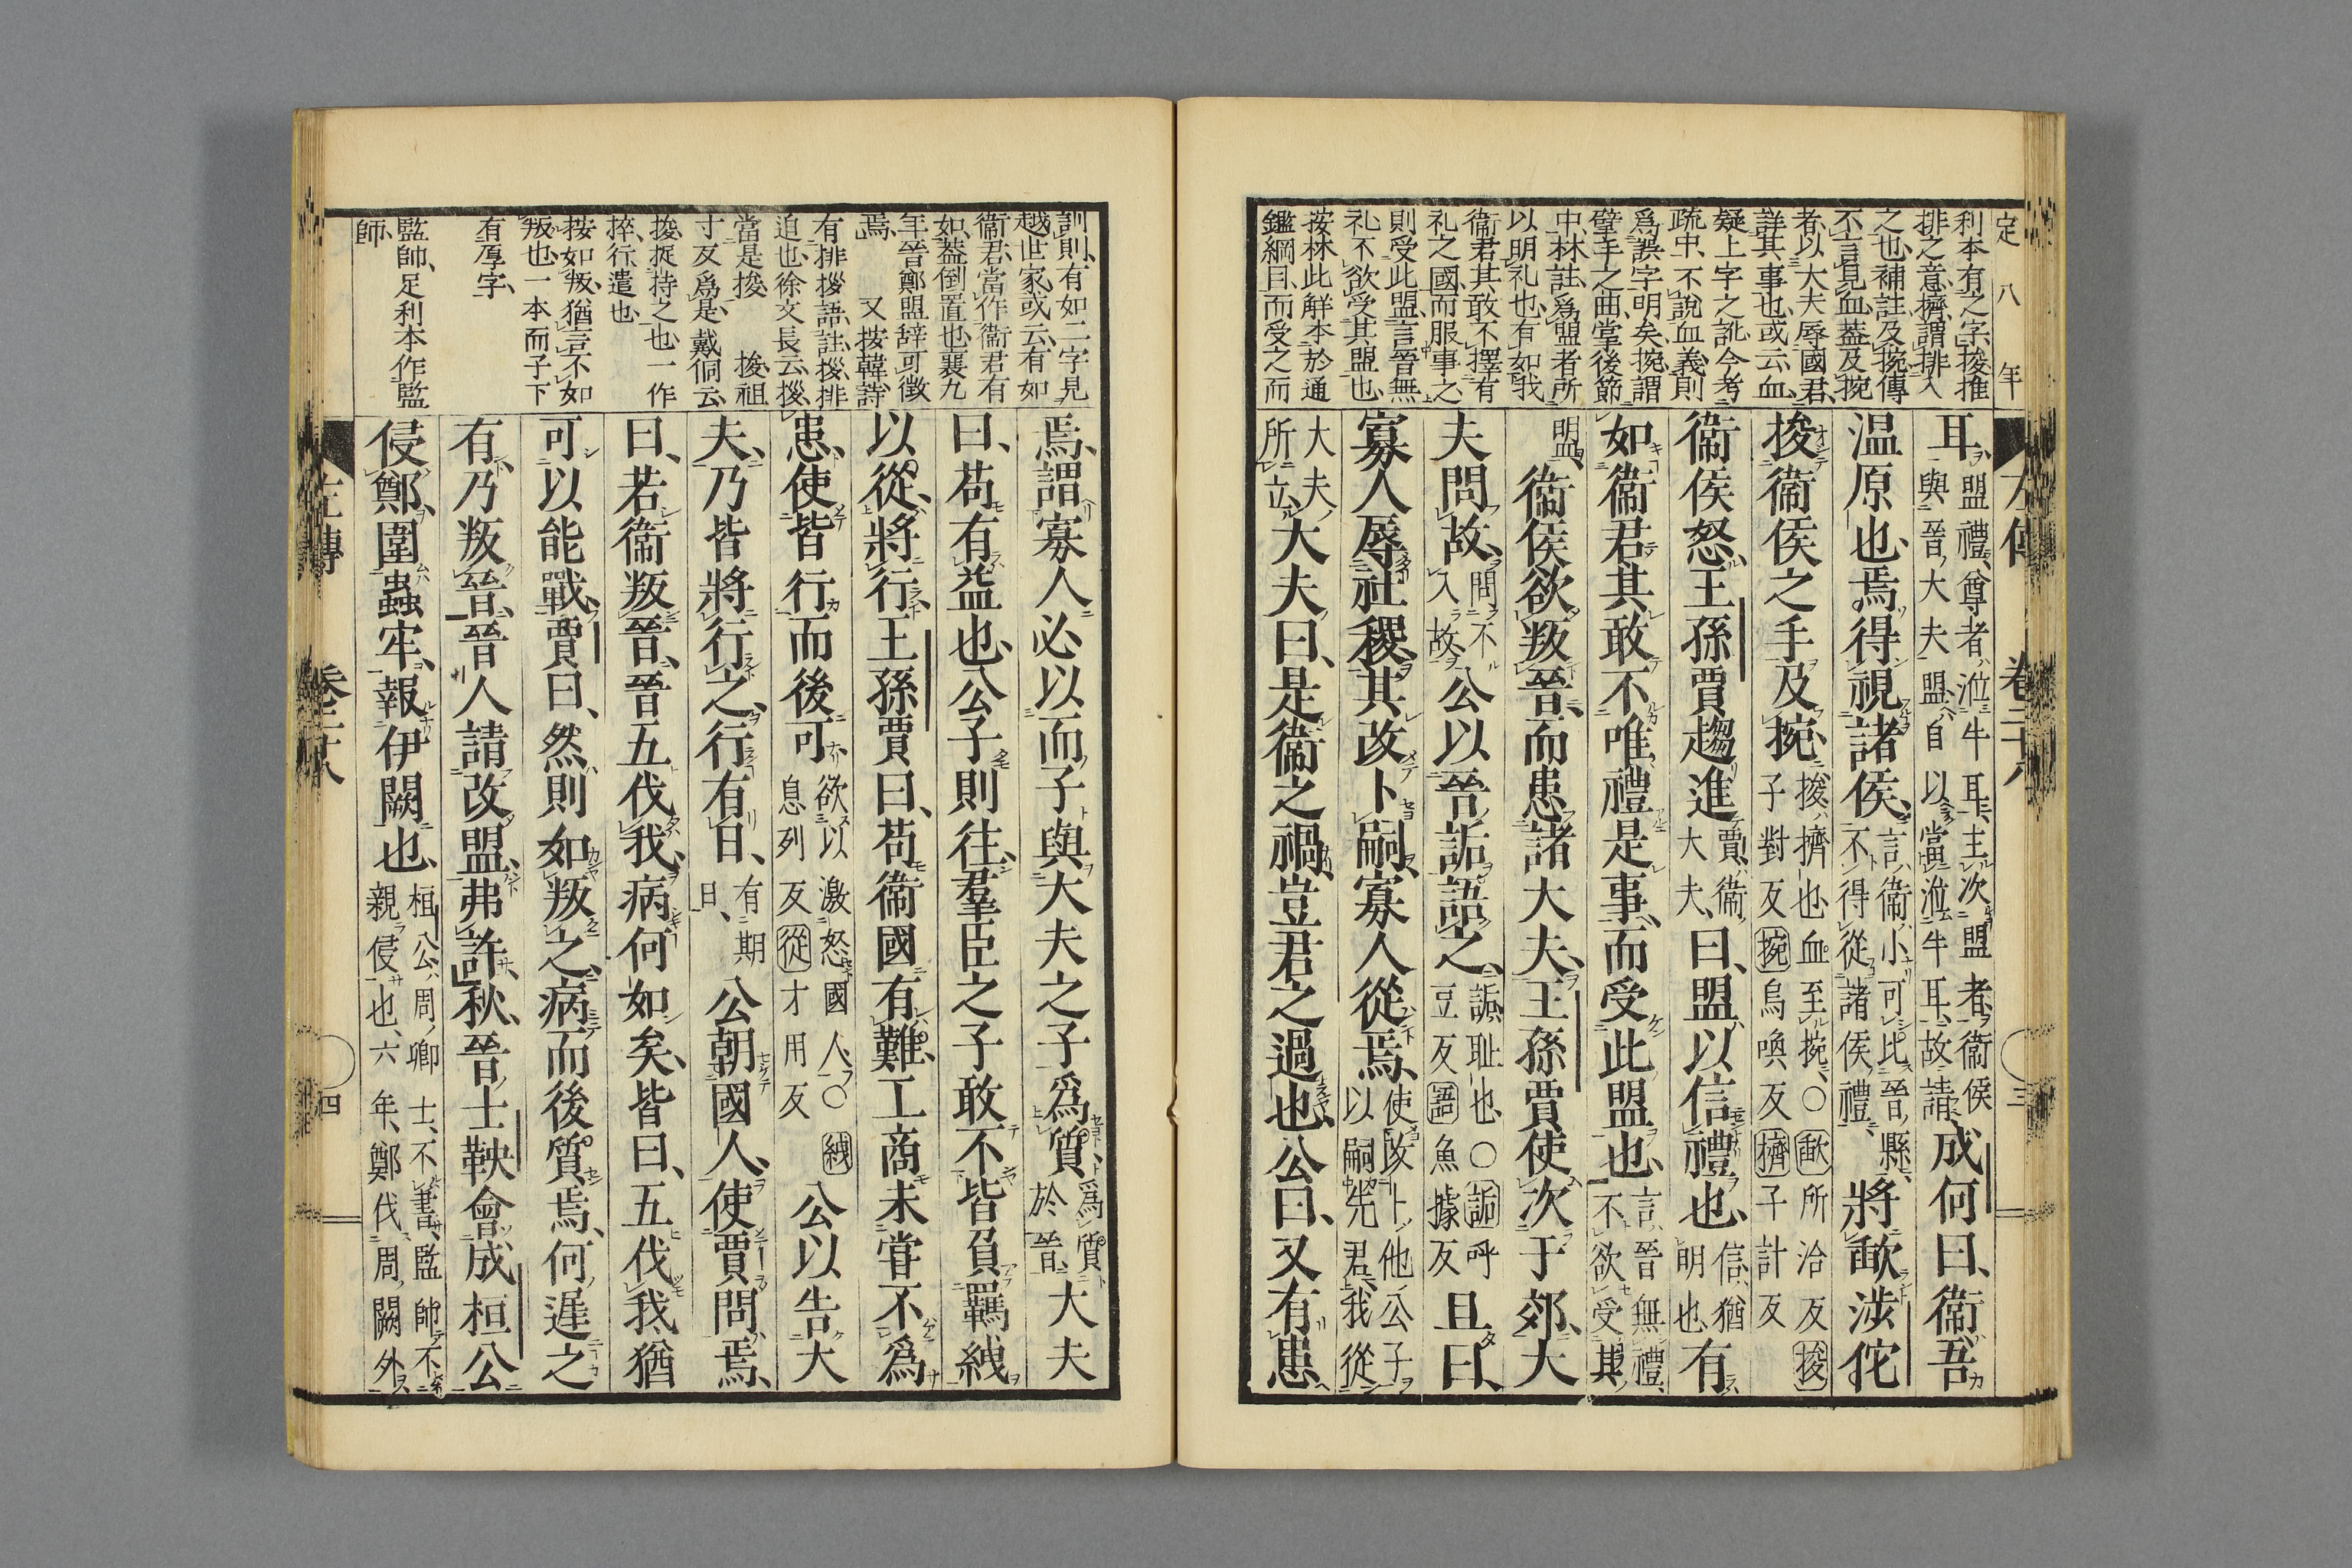 定八年
利本有之字、捘推
排之意、擠謂排入
之也、補註、及捥傳
不言見血、蓋及捥
者、以大夫辱國君、
詳其事也、或云、血
疑上字之訛、今考
疏中、不說血義、則
爲誤字明矣、捥謂
擘手之曲、掌後節
中、林註、爲盟者所
以明礼也、有如我
衞君其敢不擇有
礼之國而服事之、
則受此盟、言晉無
礼不欲受其盟也、
按林此解本於通
鑑綱目、而受之而
左傳 卷二十八 三
耳、盟禮、尊者涖牛耳、主次盟者、衞侯
與晉大夫盟、自以當涖牛耳、故請、成何曰、衞吾
温原也、焉得視諸侯、言衞小、可比晉縣、
不得從諸侯禮、將歃涉佗
捘衞侯之手及捥、捘擠也、血至捥、○歃所洽反捘
子對反捥烏喚反擠子計反
衞侯怒、王孫賈趨進、賈衞
大夫、曰、盟以信禮也、信猶
明也、有
如衞君其敢不唯禮是事、而受此盟也、言晉無禮、
不欲受其
盟、衞侯欲叛晉、而患諸大夫、王孫賈使次于郊、大
夫問故、問不
入故、公以晉詬語之、詬恥也、○詬呼
豆反語魚據反且曰、
寡人辱社稷、其改卜嗣、寡人從焉、使改卜他公子
以嗣先君、我從
大夫
所立、大夫曰、是衞之禍、豈君之過也、公曰、又有患
訓則、有如二字見
越世家、或云、有如
衞君、當作衞君有
如、蓋倒置也、襄九
年晉鄭盟辭可徴
焉、 又按韓詩
有排捘語、註、捘、排
迫也、徐文長云、捘、
當是捘 捘祖
寸反爲是、戴侗云、
捘捉持之也、一作
捽、行遣也、
按如叛、猶言不如
叛也、一本而子下
有厚字、
監帥、足利本作監
師、
焉、謂寡人必以而子與大夫之子爲質、爲質
於晉、大夫
曰、苟有益也、公子則往、羣臣之子敢不皆負羈絏
以從、將行、王孫賈曰、苟衞國有難、工商未甞不爲
患、使皆行而後可、欲以激怒國人、○絏
息列反從才用反公以告大
夫、乃皆將行之、行有日、有期
日、公朝國人、使賈問焉、
曰、若衞叛晉、晉五伐我、病何如矣、皆曰、五伐我、猶
可以能戰、賈曰、然則如叛之、病而後質焉、何遲之
有、乃叛晉、晉人請改盟、弗許、秋、晉士鞅會成桓公
侵鄭、圍蟲牢、報伊闕也、桓公周卿士、不書、監帥不
親侵也、六年、鄭伐周闕外、
左傳 卷二十八 四